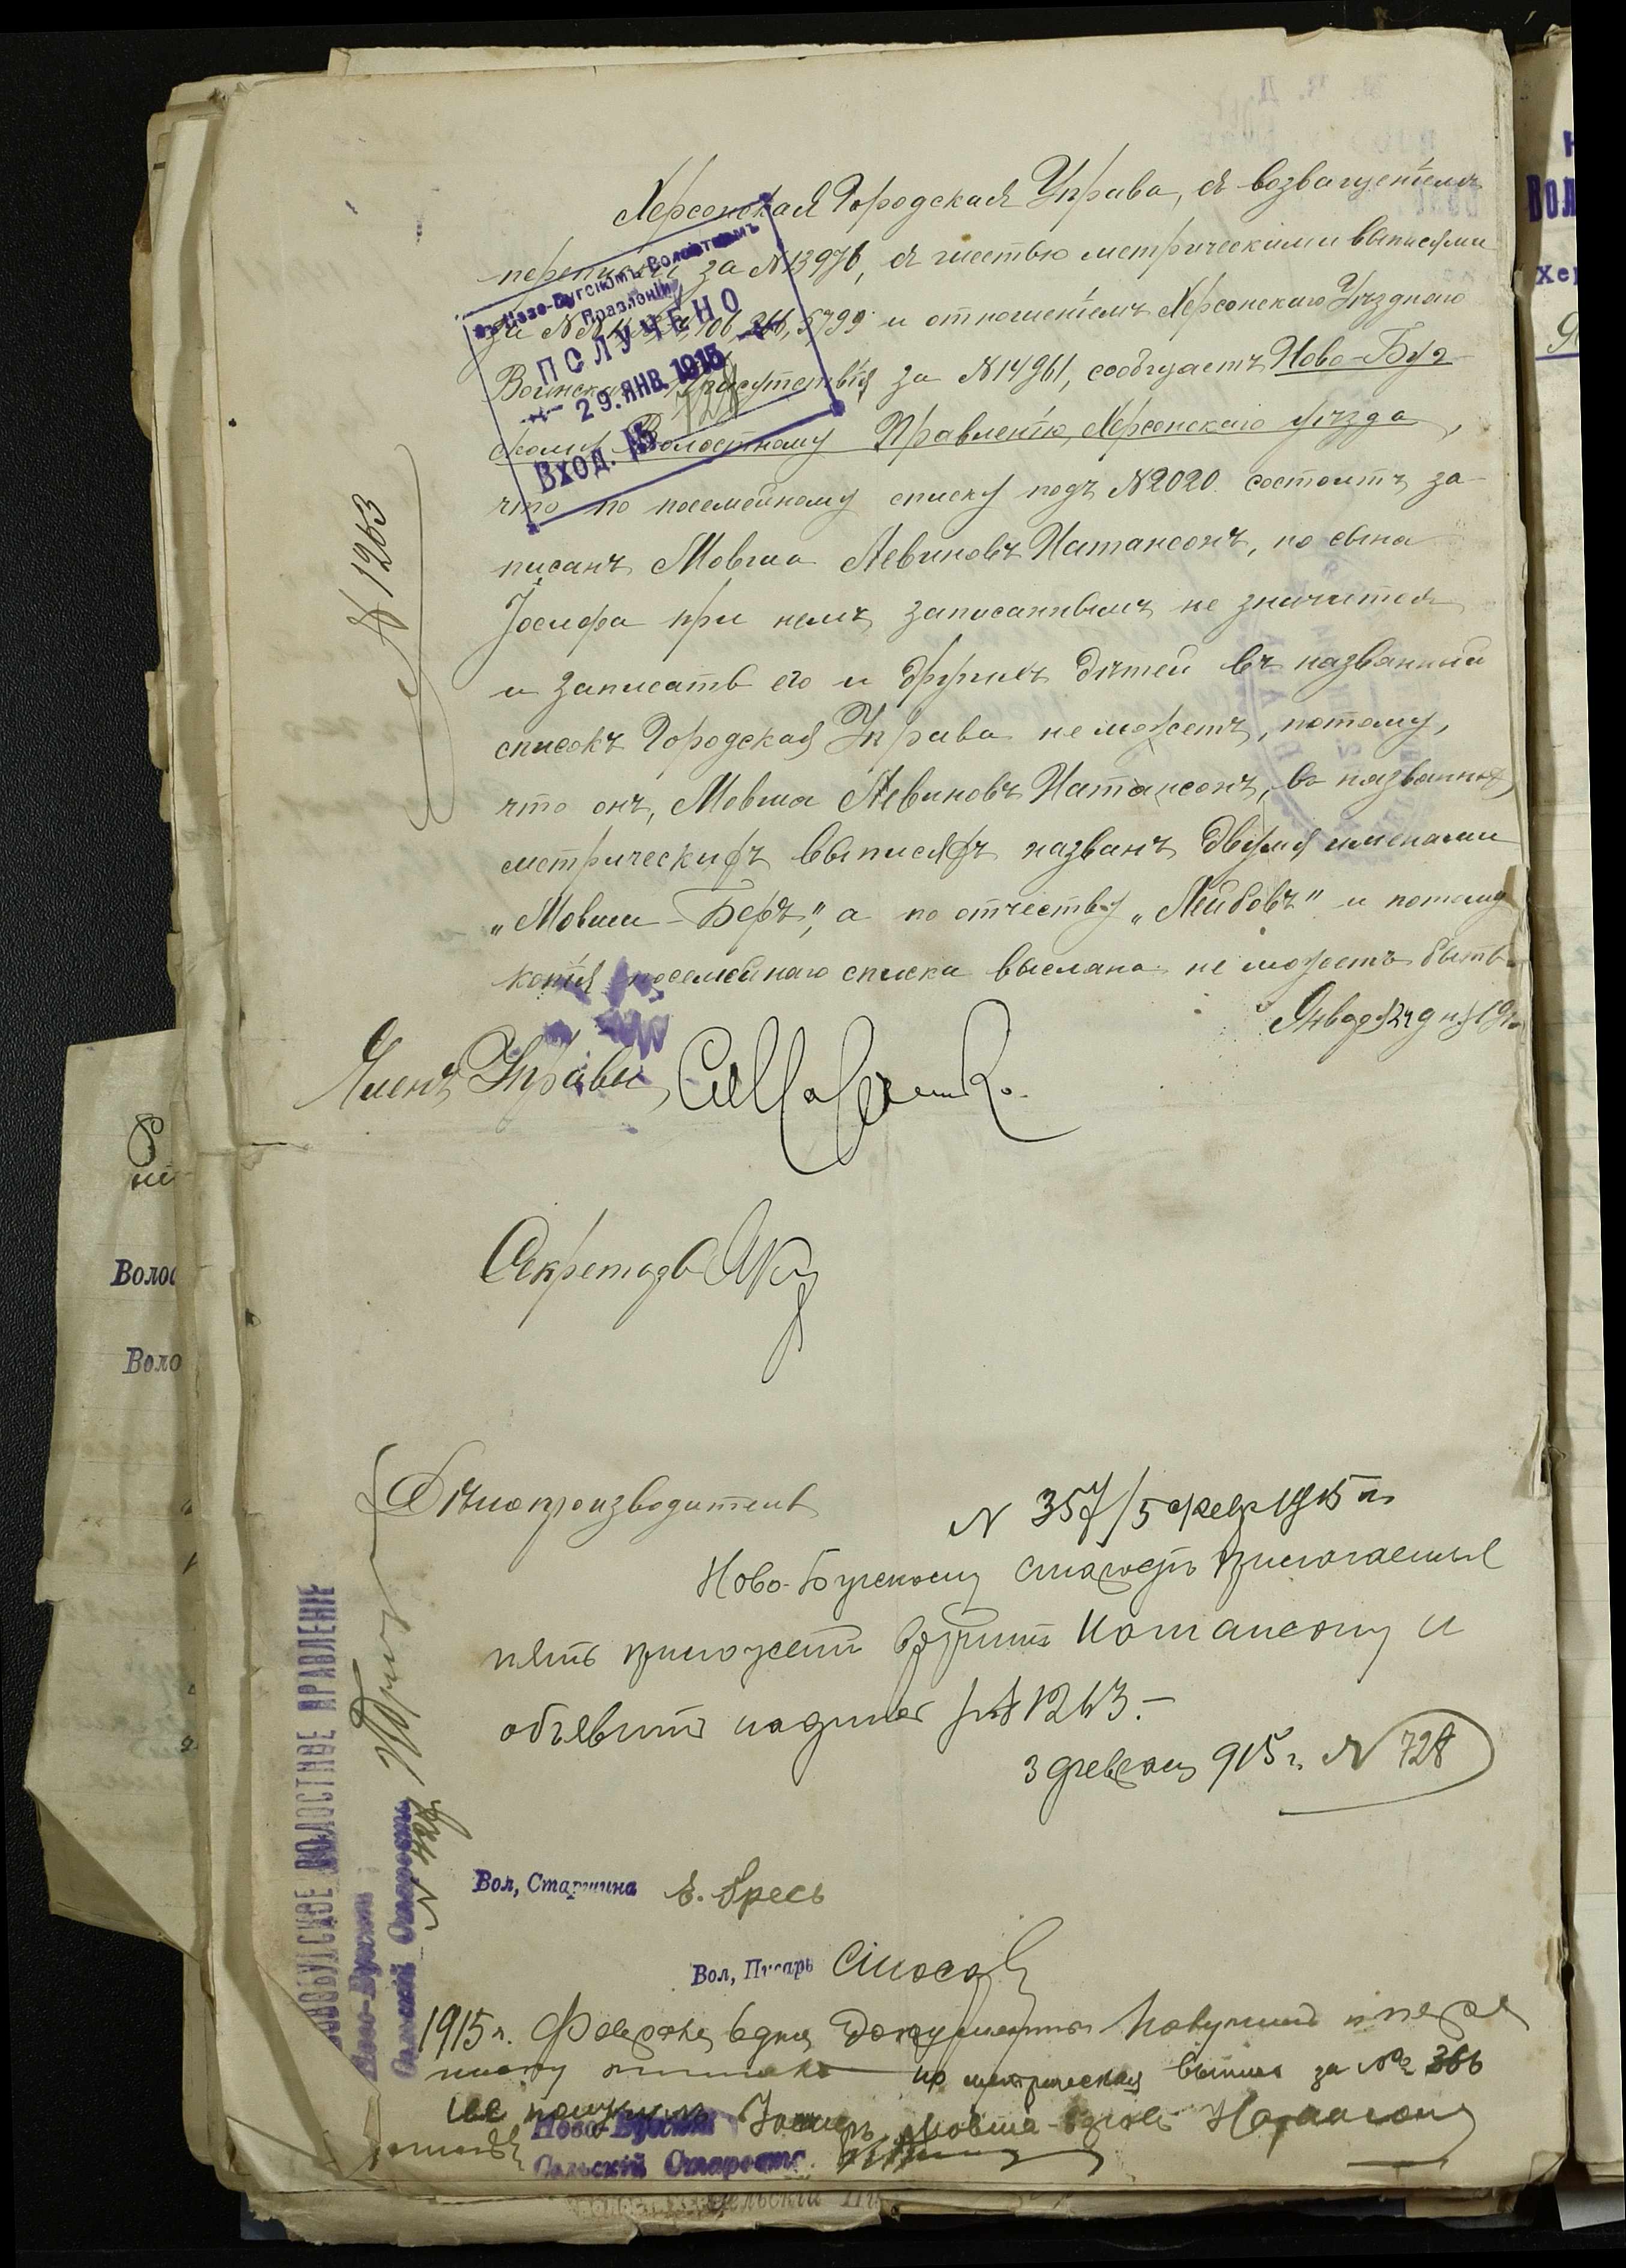 Херсонская Городская Управа, съ возвращеніемъ
переписки за №13976, съ шестью метрическими выписями
за №№ 106, 5799 и отношеніемъ Херсонскаго Уѣзднаго
Воинскаго Присутствія за №14961, сообщаетъ Ново-Буг-
скому Волостному Правленію, Херсонскаго уѣзда,
что по посемейному списку подъ №2020 состоитъ за-
писанъ Мовша Левиновъ Натансонъ, но сына
Іосифа при немъ записаннымъ не значится
и записать его и другихъ дѣтей въ названный
списокъ Городская Управа не можетъ, потому,
что онъ, Мовша Левиновъ Натансонъ, въ названныхъ
метрическихъ выписяхъ названъ двумя именами
„Мовша-Беръ", а по отчеству „Лейбовъ" и потому
копія посемейнаго списка выслана не можетъ быть.
Января 24 дня 191
Въ Ново-Бугскомъ Волостномъ
Правленіи
ПОЛУЧЕНО
29. ЯНВ. 1915
Вход. №
728
№ 1263
Членъ Управы
Секретарь
Дѣлопроизводитель
№ 357/5 февр 1915 г.
Ново-Бугскому старостѣ прилагаемые
пять приложен вручить Натансону и
объявить надпись за №1263.—
3 февраля 915 г. № 728
НОВОБУГСКОЕ ВОЛОСТНОЕ ПРАВЛЕНІЕ
Ново-Бугскій
Сельскій Староста
Вол, Старшина
Вол, Писарь
1915 г. Февраля 6 дня документы получилъ
но метрическая выпись за № 366
не получилъ Натансонъ
Ново-Бугскій
Сельскій Староста
Волос
Воло